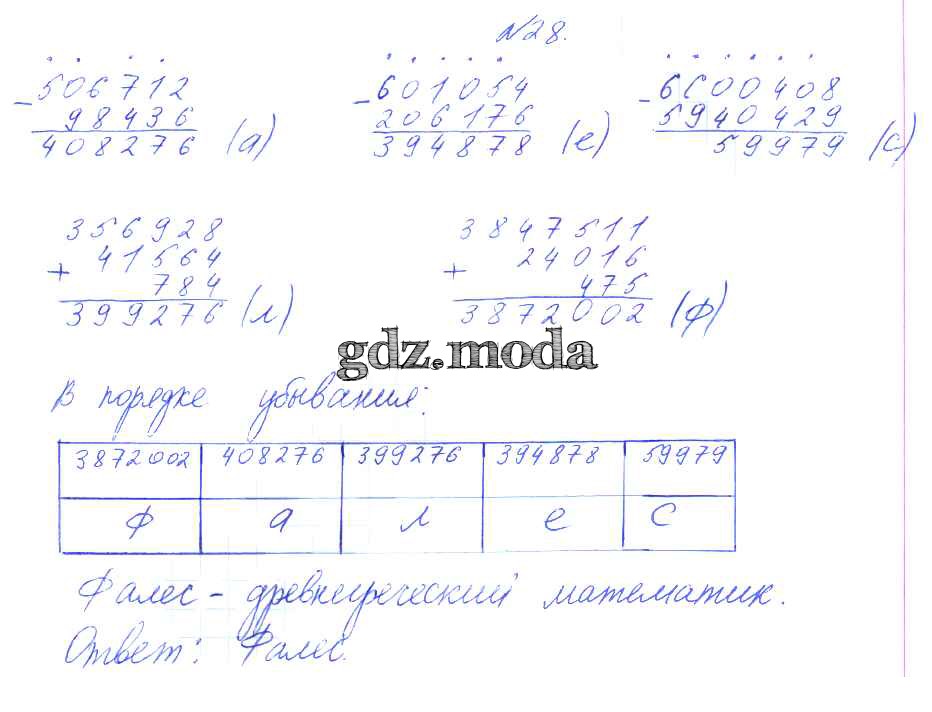 №28.
- 506712
98436
408276 (а)
- 601054
206176
394878 (е)
- 6000408
5940429
59979 (с)
356928
+ 41564
784
399276 (л)
3847511
+ 24016
475
3872002 (ф)
gdz.moda
В порядке убывания:
3872002 408276 399276 394878 59979
ф а л е с
Фалес - древнегреческий математик.
Ответ: Фалес.